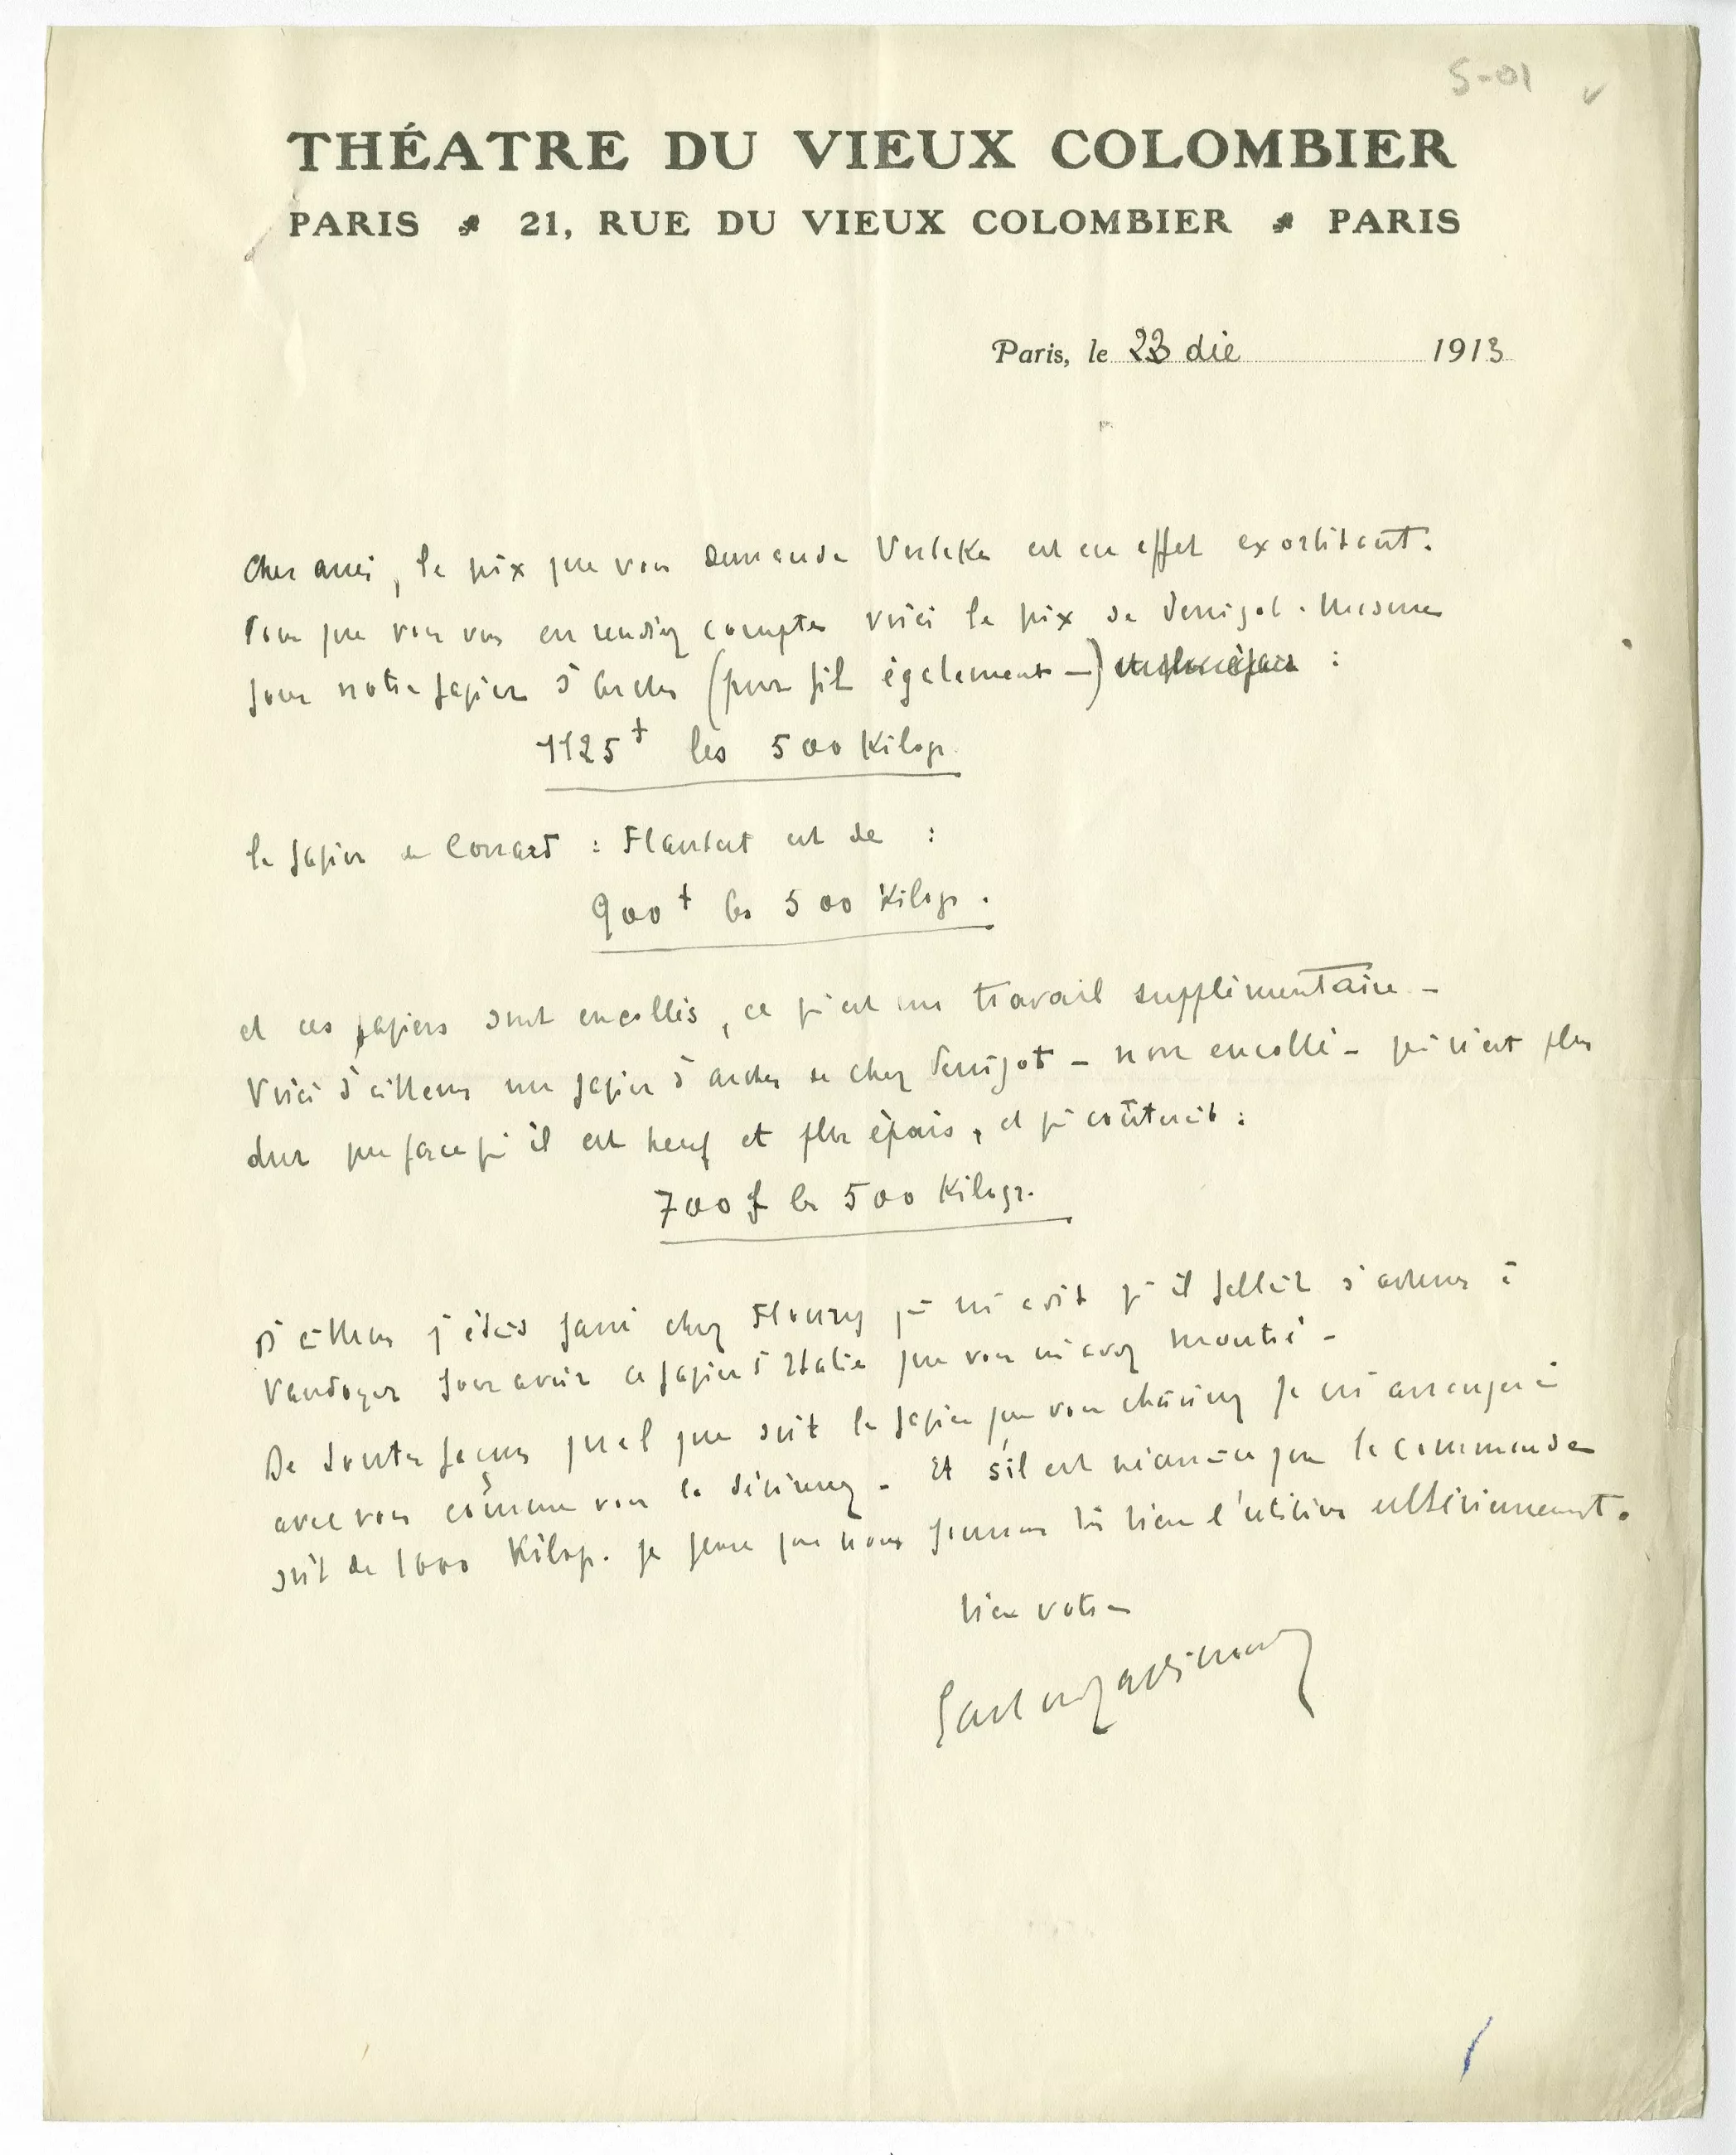 S-01
THÉATRE DU VIEUX COLOMBIER
PARIS 21, RUE DU VIEUX COLOMBIER PARIS
Paris, le 23 déc 1913
Cher ami, le prix que vous demande Verbeke est en effet exorbitant.
Pour que vous vous en rendiez compte voici le prix de Perrigot-Masure
pour notre papier d'Arches (pur fil également —) :
1125 f les 500 Kilogr.
le papier de Conard : Flaubert est de :
900 f les 500 Kilogr.
et ces papiers sont encollés, ce qui est un travail supplémentaire —
Voici d'ailleurs un papier d'arches de chez Perrigot — non encollé — qui n'est plus
dur que parce qu'il est neuf et plus épais, et qui coûterait :
700 f les 500 Kilogr.
D'ailleurs j'étais passé chez Floury qui m'a dit qu'il fallait s'adresser à
Vaudoyer pour avoir ce papier d'Italie que vous m'avez montré —
De toutes façons quel que soit le papier que vous choisirez je m'arrangerai
avec vous comme vous le désirerez. Et s'il est nécessaire que la commande
soit de 1000 Kilogr. je pense que nous pourrons très bien l'utiliser ultérieurement.
bien votre
Gaston Gallimard